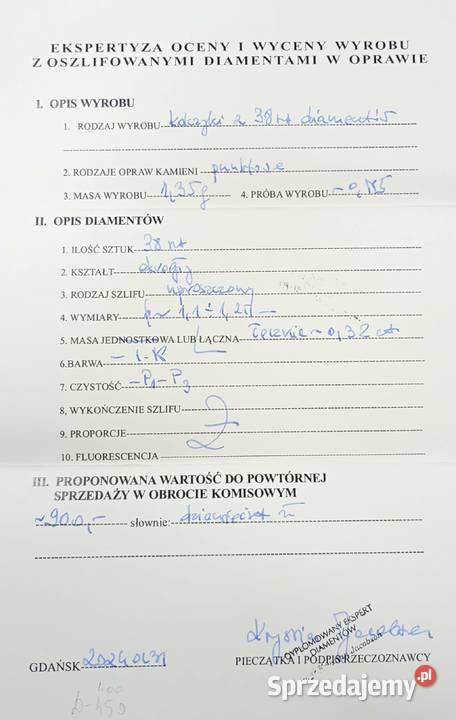 EKSPERTYZA OCENY I WYCENY WYROBU
Z OSZLIFOWANYMI DIAMENTAMI W OPRAWIE
I. OPIS WYROBU
1. RODZAJ WYROBU kolczyki z 38 szt diamentów
2. RODZAJE OPRAW KAMIENI punktowe
3. MASA WYROBU 1,35g 4. PRÓBA WYROBU ~0,585
II. OPIS DIAMENTÓW
1. ILOŚĆ SZTUK 38 szt
2. KSZTAŁT okrągły
3. RODZAJ SZLIFU uproszczony
4. WYMIARY 1,1 ÷ 1,2
5. MASA JEDNOSTKOWA LUB ŁĄCZNA łącznie ~0,32 ct
6.BARWA I-K
7. CZYSTOŚĆ P1-P3
8, WYKOŃCZENIE SZLIFU
9. PROPORCJE
10. FLUORESCENCJA
III. PROPONOWANA WARTOŚĆ DO POWTÓRNEJ
SPRZEDAŻY W OBROCIE KOMISOWYM
~900,- słownie: dziewięćset zł
DYPLOMOWANY EKSPERT
DIAMENTÓW
Jacobson
GDAŃSK
PIECZĄTKA I PODPIS RZECZOZNAWCY
400
D-450
Sprzedajemy.pl